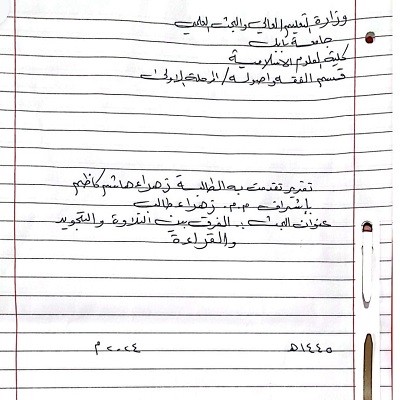 وزارة التعليم العالي والبحث العلمي
جامعة بابل
كلية العلوم الاسلامية
قسم الفقه واصوله / المرحلة الاولى
تقرير تقدمت به الطالبة زهراء هاشم كاظم
بإشراف م.م. زهراء طالب
عنوان البحث :- الفرق بين التلاوة والتجويد
والقراءة
١٤٤٥ه ٢٠٢٤ م